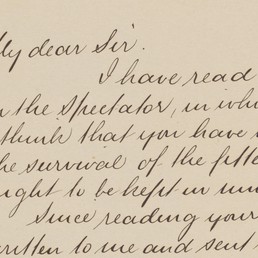 My dear Sir.
I have read
the Spectator, in
think that you have
survival of the
to be kept in
Since reading your
to me and sent